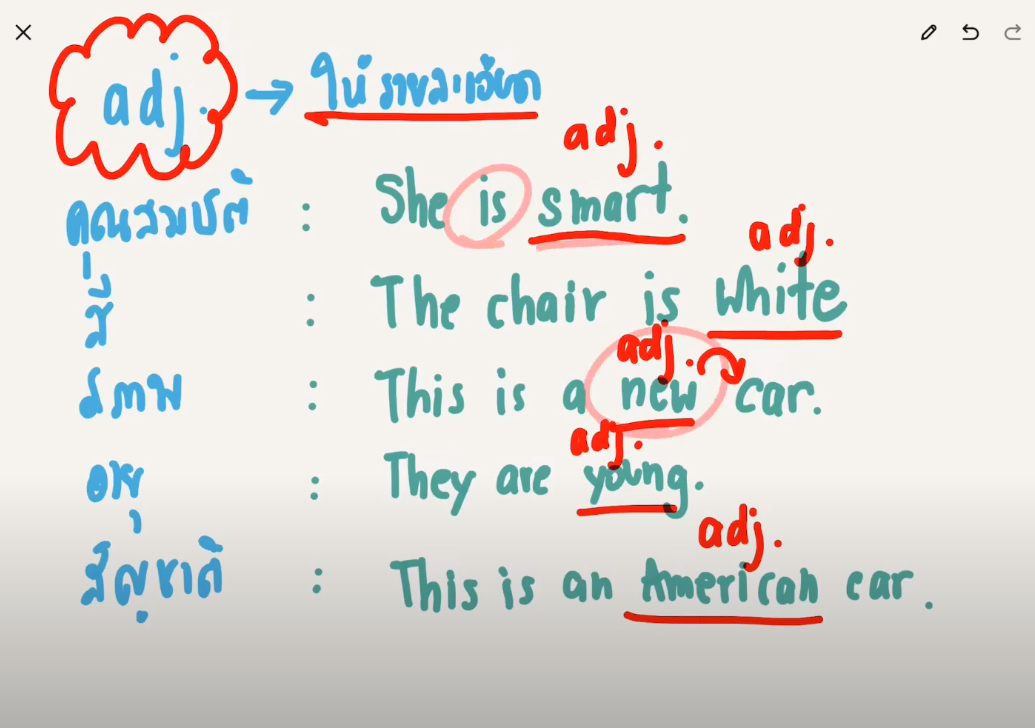 adj. → ให้รายละเอียด
adj.
คุณสมบัติ : She is smart.
adj.
สี : The chair is white
adj.
สภาพ : This is a new car.
adj.
อายุ : They are young.
adj.
สัญชาติ : This is an American car.